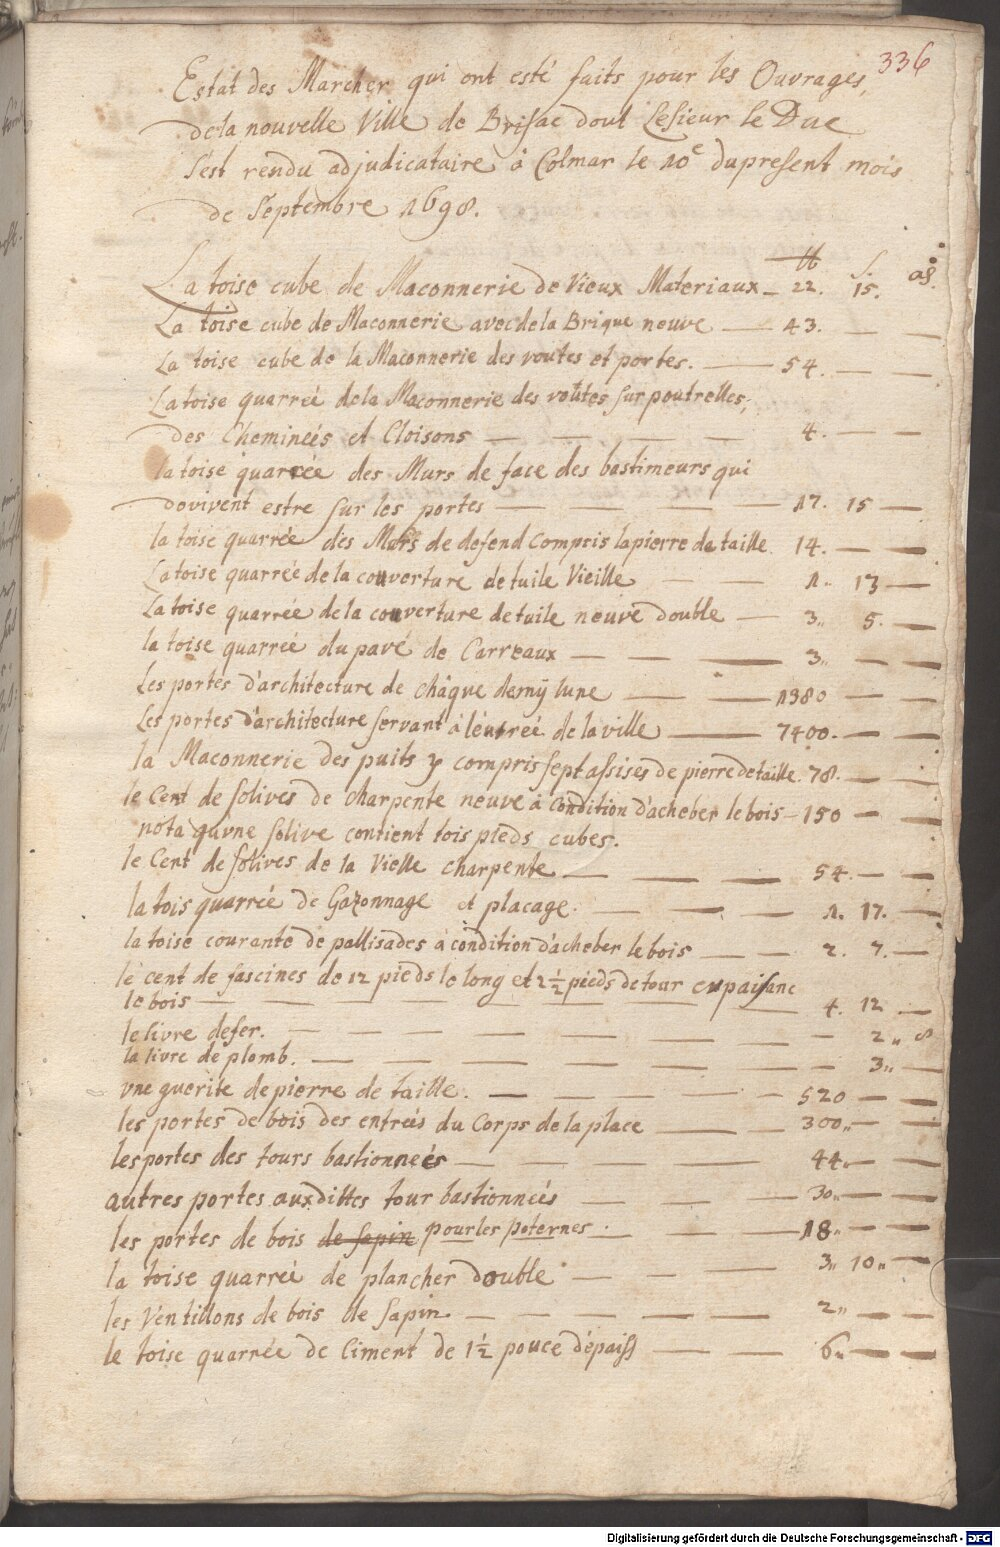 336
Estat des Marcher qui ont esté faits pour les Ouvrages,
de la nouvelle Ville de Brisac dont Lesieur le Duc
s'est rendu adjudicataire à Colmar le 10e du present mois
de Septembre 1698.
tt s. ₰.
La toise cube de Maconnerie de Vieux Materiaux - 22. 15.
La toise cube de Maconnerie avec de la Brique neuve — 43. — —
La toise cube de la Maconnerie des voutes et portes. — 54. — —
La toise quarrée de la Maconnerie des voûtes sur poutrelles,
des Cheminées et Cloisons — — — — 4. — —
la toise quarrée des Murs de face des bastimeurs qui
doivent estre sur les portes — — — — 17. 15 —
la toise quarrée des Murs de defend compris la pierre de taille 14. — —
La toise quarrée de la couverture de tuile Vieille — — 1. 13 —
La toise quarrée de la couverture de tuile neuve double — 3,, 5. —
la toise quarrée du pavé de Carreaux — — — 3,, — —
Les portes d'architecture de châque demÿ lune — — 1380 — —
Les portes d'architecture servant à l'eutreé de la ville — 7400. — —
la Maconnerie des puits y compris sept assises de pierre de taille. 78. — —
le Cent de solives de charpente neuve à condition d'acheber le bois - 150 — —
nota qu'vne solive contient tois pieds cubes.
le Cent de solives de la Vielle charpente — — — 54. — —
la tois quarrée de Gazonnage et placage. — — — 1. 17. —
la toise courante de pallisades à condition d'acheber le bois — — 2. 7. —
le cent de fascines de 12 pieds le long et 2 1/2 pieds de tour
le bois — — — — — 4. 12 —
le livre de fer. — — — — — — 2,, 8
la livre de plomb. — — — — — — 3,, —
vne guerite de pierre de taille. — — — — 520 — —
les portes de bois des entreés du Corps de la place — — 300,, — —
les portes des tours bastionneés — — — — 44,, — —
autres portes auxdittes tour bastionneés — — — 30,, — —
les portes de bois de sapin pour les poternes. — — — 18,, — —
la toise quarrée de plancher double — — — 3,, 10,, —
les Ventillons de bois de sapin — — — — — 2,, — —
le toise quarrée de Ciment de 1 1/2 pouce d'épaiss — — 6,, — —
Digitalisierung gefördert durch die Deutsche Forschungsgemeinschaft - DFG